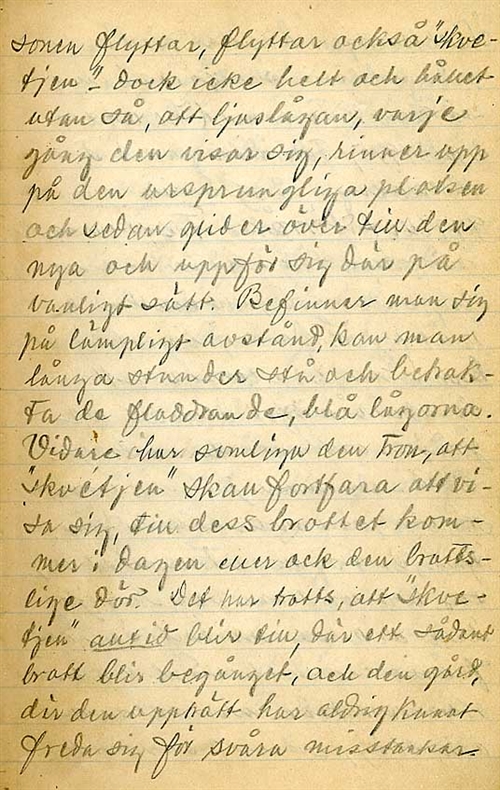 sonen flyttar, flyttar också "skve-
tjen" - dock icke helt och hållet
utan så, att ljuslågan, varje
gång den visar sig, rinner upp
på den ursprungliga platsen
och sedan glider över till den
nya och uppför sig där på
vanligt sätt. Befinner man sig
på lämpligt avstånd, kan man
långa stunder stå och betrak-
ta de fladdrande, blå lågorna.
Vidare har somliga den tron, att
"skvetjen" skall fortfara att vi-
sa sig, till dess brottet kom-
mer i dagen eller ock den brotts-
lige dör. Det har trotts, att "skve-
tjen" alltid blir till, där ett sådant
brott blir begånget, och den gård,
där den uppträtt har aldrig kunnat
freda sig för svåra misstankar.